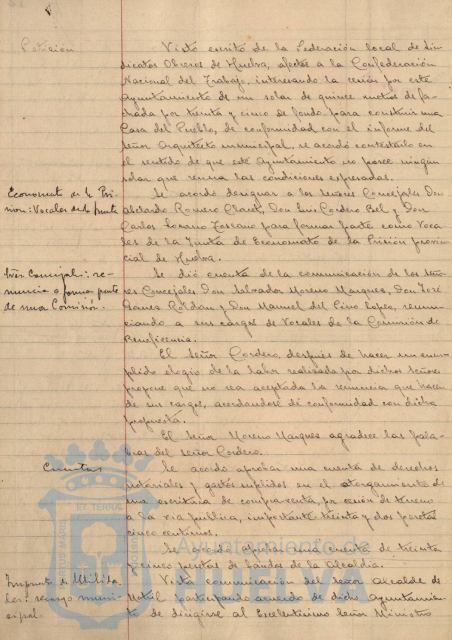 Petición
Visto escrito de la Federación local de Sin-
dicatos Obreros de Huelva, afectos a la Confederación
Nacional del Trabajo, interesando la cesión por este
Ayuntamiento de un solar de quince metros de fa-
chada por treinta y cinco de fondo para construir una
Casa del Pueblo, de conformidad con el informe del
Señor Arquitecto municipal, se acordó contestarle en
el sentido de que este Ayuntamiento no posee ningún
solar que reuna las condiciones expresadas.
Economato de la Pri-
sión: Vocales de la Junta
Se acordó designar a los señores Concejales Don
Abelardo Romero Claret, Don Luis Cordero Bel y Don
Carlos Lozano Toscano para formar parte como Voca-
les de la Junta de Economato de la Prisión provin-
cial de Huelva.
Sres. Concejal.: re-
nuncia a formar parte
de una Comisión.
Se dió cuenta de la comunicación de los Seño-
res Concejales Don Salvador Moreno Marquez, Don José
Gomez Roldán y Don Manuel del Pino Lopez, renun-
ciando a sus cargos de Vocales de la Comisión de
Beneficencia.
El Señor Cordero, después de hacer un cum-
plido elogio de la labor realizada por dichos señores
propone que no sea aceptada la renuncia que hacen
de sus cargos, acordandose de conformidad con dicha
propuesta.
El Señor Moreno Marquez agradece las pala-
bras del señor Cordero.
Cuentas
Se acordó aprobar una cuenta de derechos
notariales y gastos suplidos en el otorgamiento de
una escritura de compraventa, por cesión de terreno
a la via publica, importante treinta y dos pesetas
cinco centimos.
Se acordó aprobar una cuenta de treinta
y cinco pesetas de bandos de la Alcaldía.
Impuesto de Utilida-
des: recargo muni-
cipal.
Vista comunicación del Señor Alcalde de
Motril participando acuerdo de dicho Ayuntamien-
to de dirigirse al Excelentísimo Señor Ministro
Ayuntamiento de
HUELVA